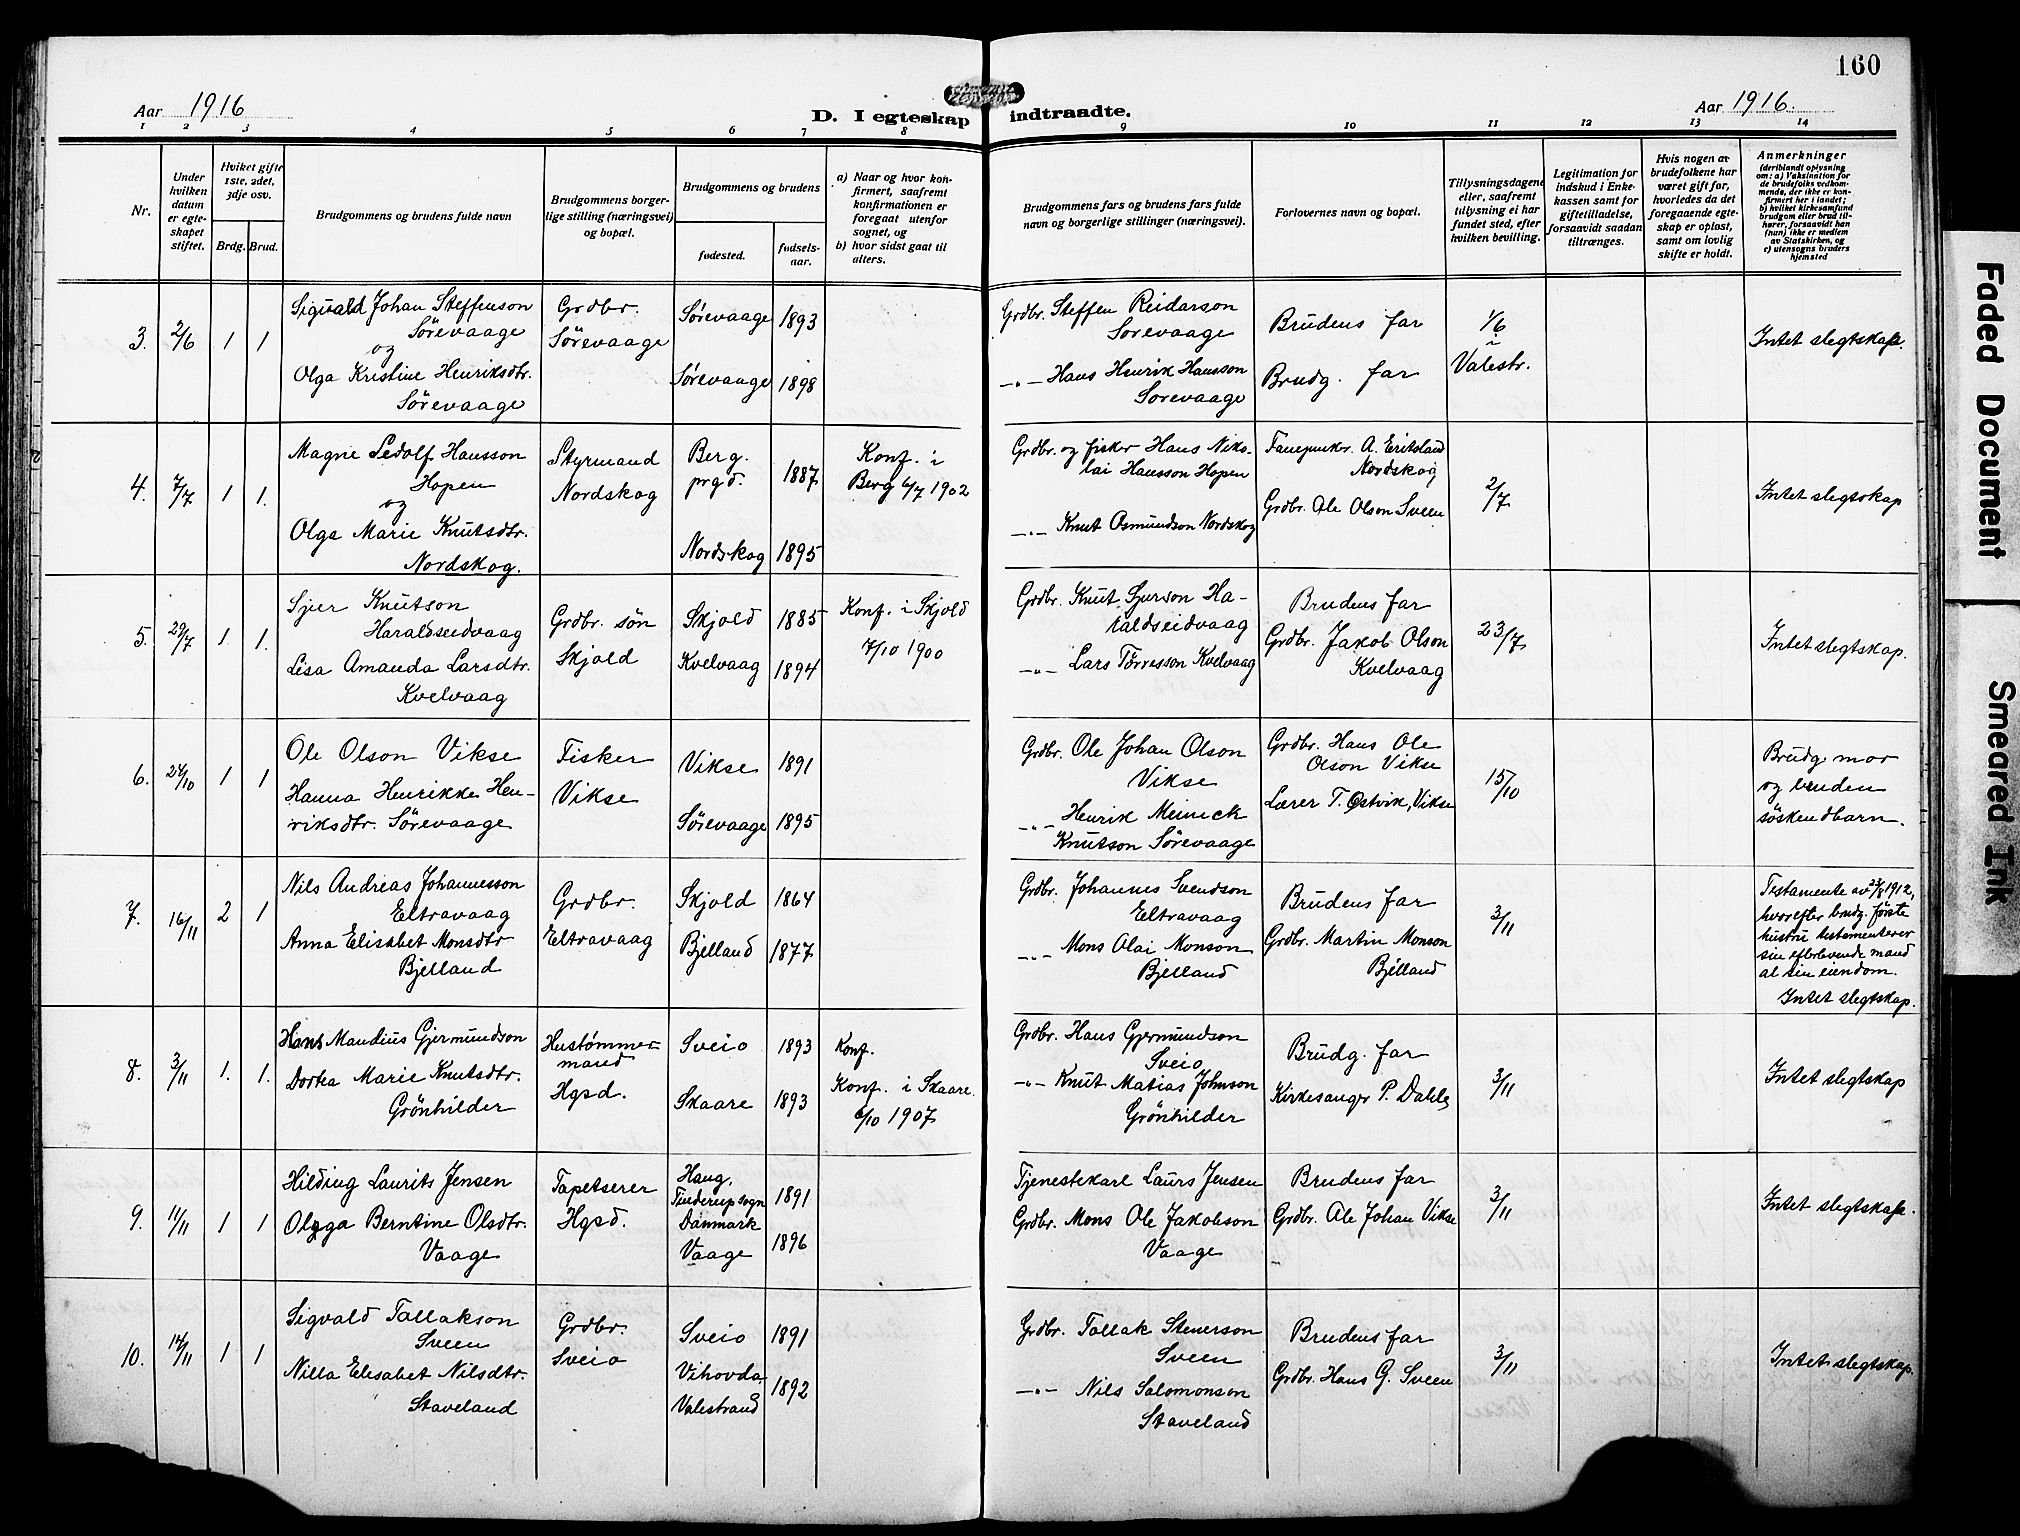 160
Aar 1916
D. I egteskap indtraadte.
Aar 1916.
1 2 3 4 5 6 7 8 9 10 11 12 13 14
Nr.
Under hvilken datum er egteskapet stiftet.
Hvilket gifte 1ste, 2det, 3dje osv.
Brdg. Brud.
Brudgommens og brudens fulde navn
Brudgommens borgerlige stilling (næringsvei) og bopæl.
Brudgommens og brudens
fødested.
fødselsaar.
a) Naar og hvor konfirmert, saafremt konfirmationen er foregaat utenfor sognet, og
b) hvor sidst gaat til alters.
Brudgommens fars og brudens fars fulde navn og borgerlige stillinger (næringsvei).
Forlovernes navn og bopæl.
Tillysningsdagene eller, saafremt tillysning ei har fundet sted, efter hvilken bevilling.
Legitimation for indskud i Enkekassen samt for giftetilladelse, forsaavidt saadan tiltrænges.
Hvis nogen av brudefolkene har været gift før, hvorledes da det foregaaende egteskap er opløst, samt om lovlig skifte er holdt.
Anmerkninger
(deriblandt oplysning om: a) Vaksination for de brudefolks vedkommende, der ikke er konfirmert her i landet; b) hvilket kirkesamfund brudgom eller brud tilhører, forsaavidt han (hun) ikke er medlem av Statskirken, og c) utensogns bruders hjemsted
3. 2/6 1 1
Sigvald Johan Steffenson
Sørevaage
og
Olga Kristine Henriksdtr.
Sørevaage
Grdbr.
Sørevaage
Sørevaage 1893
Sørevaage 1898
Grdbr. Steffen Reidarson
Sørevaage
-"- Hans Henrik Hansson
Sørevaage
Brudens far
Brudg. far
1/6
i
Valestr.
Intet slegtskap.
4. 7/7 1 1.
Magne Ledolf Hansson
Hopen
og
Olga Marie Knutsdtr.
Nordskog.
Styrmand
Nordskog
Berg.
prgd. 1887
Nordskog 1895
Konf. i
Berg 6/7 1902
Grdbr. og fisker Hans Niko-
lai Hansson Hopen
-"- Knut Osmundson Nordskog
A.
Nordskog
Grdbr. Ole Olson Sveen
2/7
Intet slegtskap
5. 29/7 1. 1.
Sjur Knutson
Haraldseidvaag
Lisa Amanda Larsdtr.
Kvelvaag
Grdbr. søn
Skjold
Skjold 1885
Kvelvaag 1894
Konf. i Skjold
7/10 1900
Grdbr. Knut Sjurson Ha-
raldseidvaag
-"- Lars Tørresson Kvelvaag
Brudens far
Grdbr. Jakob Olson
Kvelvaag
23/7
Intet slegtskap.
6. 24/10 1 1
Ole Olson Vikse
Hanna Henrikke Hen-
riksdtr. Sørevaage
Fisker
Vikse
Vikse 1891
Sørevaage 1895
Grdbr. Ole Johan Olson
Vikse
-"- Henrik Meinick
Knutson Sørevaage
Grdbr. Hans Ole
Olson Vikse
Lærer T. Østvik, Vikse
15/10
Brudg. mor
og bruden
søskendbarn.
7. 16/11 2 1
Nils Andreas Johannesson
Eltravaag
Anna Elisabet Monsdtr
Bjelland
Grdbr.
Eltravaag
Skjold 1864
Bjelland 1877
Grdbr. Johannes Svendson
Eltravaag
-"- Mons Olai Monson
Bjelland
Brudens far
Grdbr. Martin Monson
Bjelland
3/11
Testamente av 1912,
hvorefter brudg. første
hustru testamenterer
sin efterlevende mand
al sin eiendom.
Intet slegtskap.
8. 3/11 1. 1.
Hans Mandius Gjermundson
Dortea Marie Knutsdtr.
Grönhilder
Hustømmer-
mand
Hgsd.
Sveio 1893
Skaare 1893
Konf.
Konf. i Skaare
6/10 1907
Grdbr. Hans Gjermundson
Sveio
-"- Knut Matias Johnson
Grönhilder
Brudg. far
Kirkesanger P. Dahle
3/11
Intet slegtskap
9. 11/11 1 1
Hilding Laurits Jensen
Olga Berntine Olsdtr.
Vaage
Tapetserer
Hgsd.
Haug,
Tinderup sogn 1891
Danmark
Vaage 1896
Tjenestekarl Laurs Jensen
Grdbr. Mons Ole Jakobson
Vaage
Brudens far
Grdbr. Ole Johan Vikse
3/11
Intet slegtskap.
10. 14/11 1 1
Sigvald Tallakson
Sveen
Nilla Elisabet Nilsdtr.
Staveland
Grdbr.
Sveio
Sveio 1891
Vihovda
Valestrand 1892
Grdbr. Tallak Stenerson
Sveen
-"- Nils Salomonson
Staveland
Brudens far
Grdbr. Hans G. Sveen
3/11
Intet slegtskap.
Faded Document
Smeared Ink